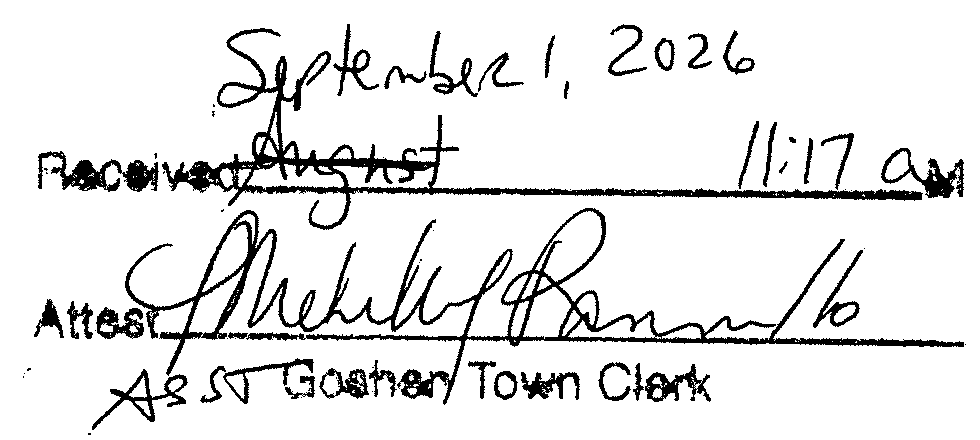 September 1, 2026
Received August 11:17 am
Attest
Asst Goshen Town Clerk